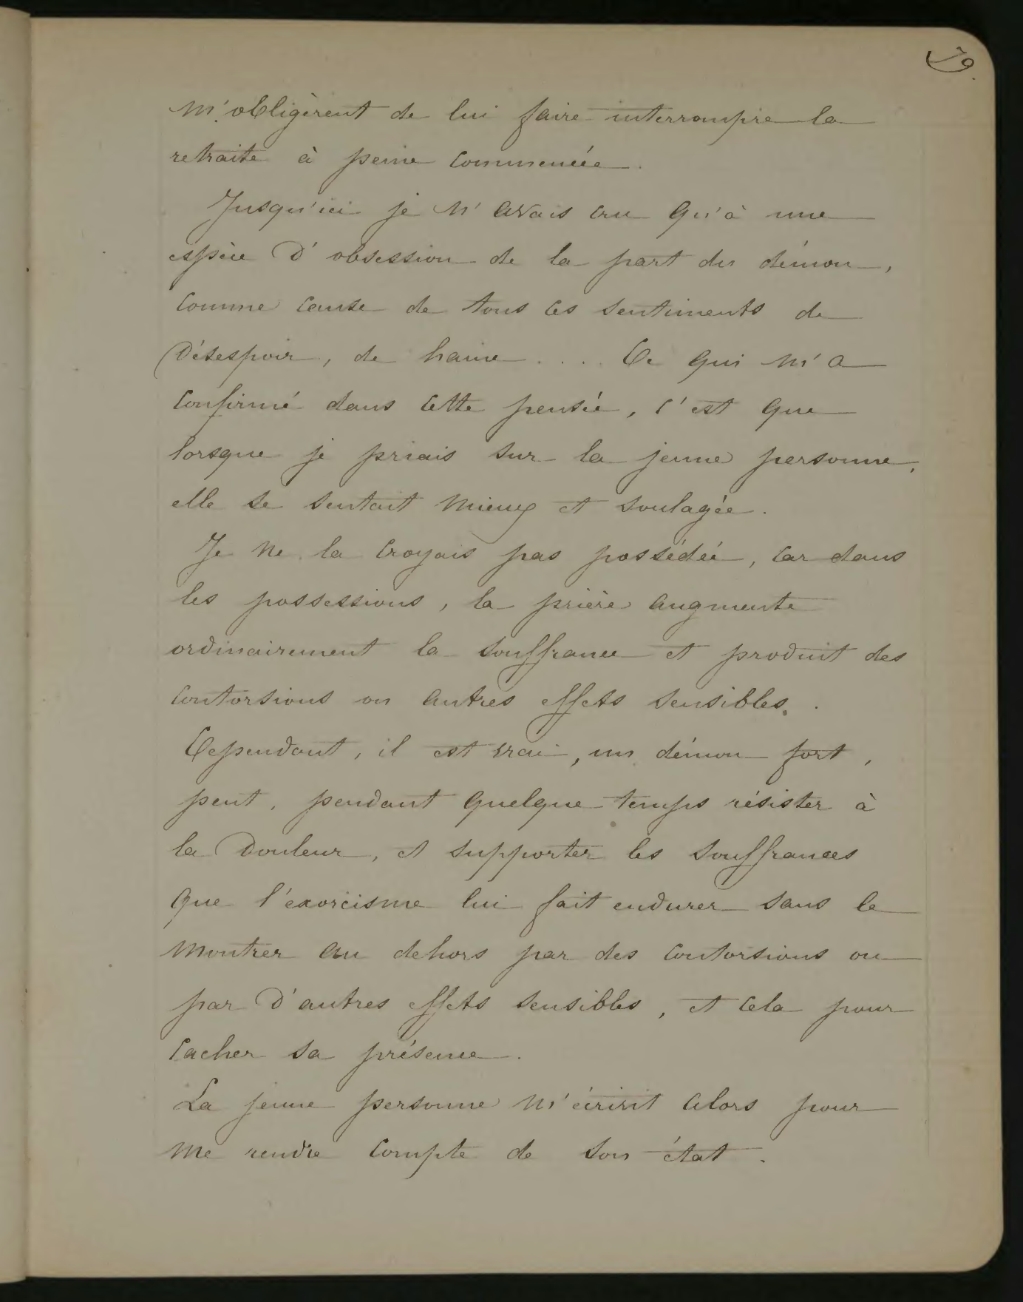 79.
m'obligèrent de lui faire interrompre la
retraite à peine commencée.
Jusqu'ici je n'avais cru qu'à une
espèce d'obsession de la part du démon,
comme cause de tous ces sentiments de
désespoir, de haine.... Ce qui m'a
confirmé dans cette pensée, c'est que
lorsque je priais sur la jeune personne,
elle se sentait mieux et soulagée.
Je ne la croyais pas possédée, car dans
les possessions, la prière augmente
ordinairement la souffrance et produit des
contorsions ou autres effets sensibles.
Cependant, il est vrai, un démon fort,
peut, pendant quelque temps résister à
la douleur, et supporter les souffrances
que l'exorcisme lui fait endurer sans le
montrer au dehors par des contorsions ou
par d'autres effets sensibles, et cela pour
cacher sa présence.
La jeune personne m'écrivit alors pour
me rendre compte de son état.